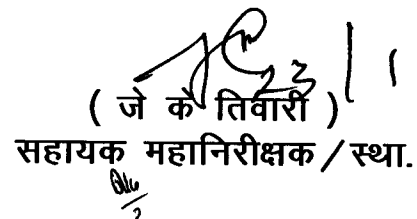 23/1
( जे के तिवारी )
सहायक महानिरीक्षक / स्था.